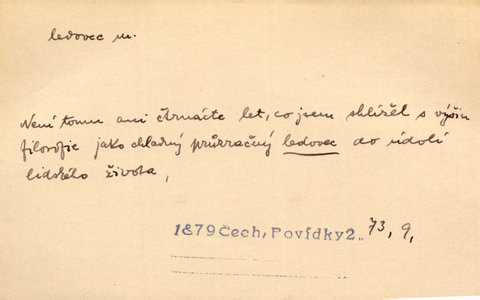 ledovec m.
Není tomu ani čtrnácte let, co jsem shlížel s výšin
filosofie jako chladný průzračný ledovec do údolí
lidského života,
1879 Čech, Povídky 2., 73, 9,